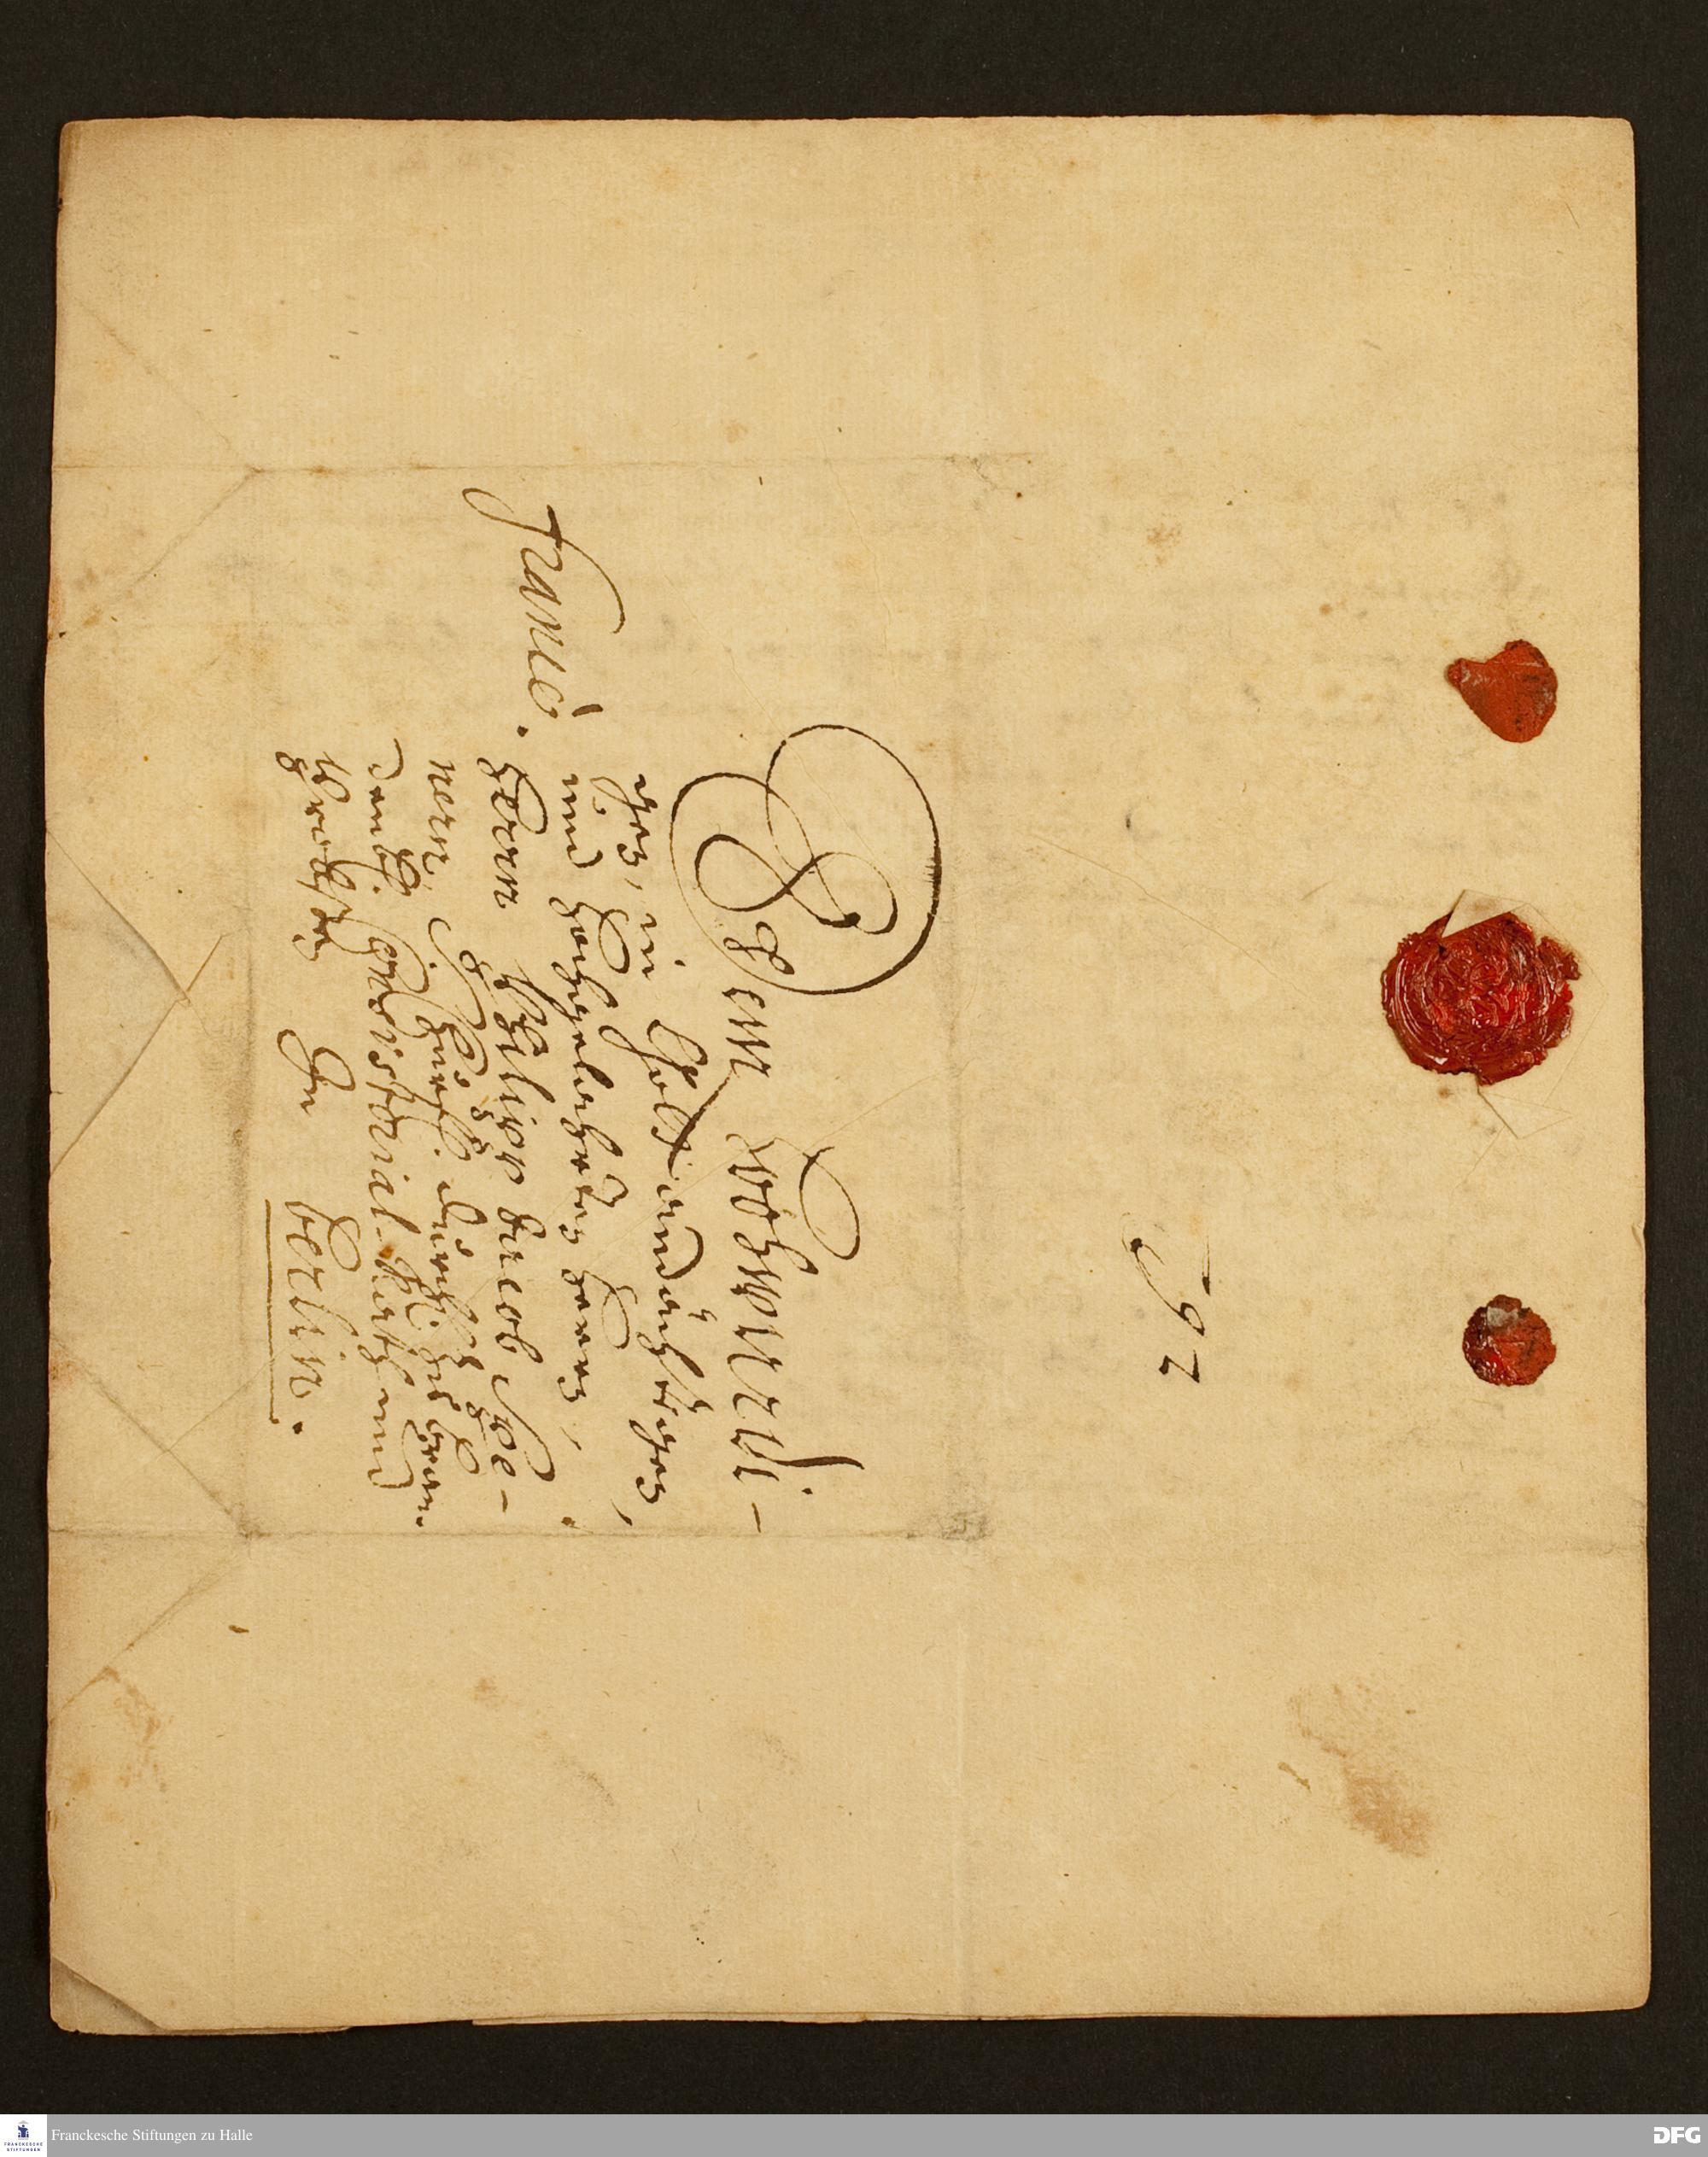 Dem Hochwürdi-
gen, in Gott andächtigen,
und Hochgelehrten Herrn,
Herrn Philipp Jacob Spe-
nern, Sr. Churfl. Durchl. zu Bran-
denb. Consistorial-Rath und
Probsten In Berlin.
franco.
Franckesche Stiftungen zu Halle
DFG
FRANCKESCHE
STIFTUNGEN